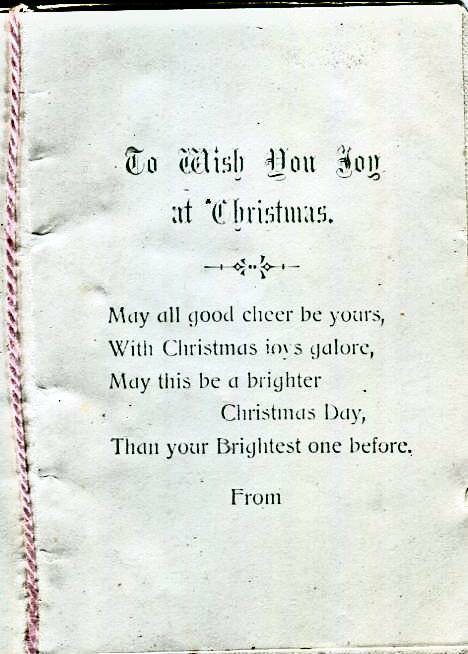 To Wish You Joy
at Christmas.
May all good cheer be yours,
With Christmas joys galore,
May this be a brighter
Christmas Day,
Than your Brightest one before.
From